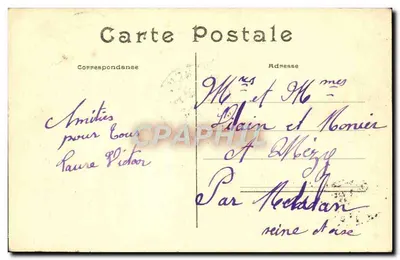 Carte Postale
Correspondance
Adresse
Amitiés
pour tous
Laure Victor
Mrs et Mmes
Plain et Monier
A Mézy
Par Meulan
seine et oise
CPAPHIL